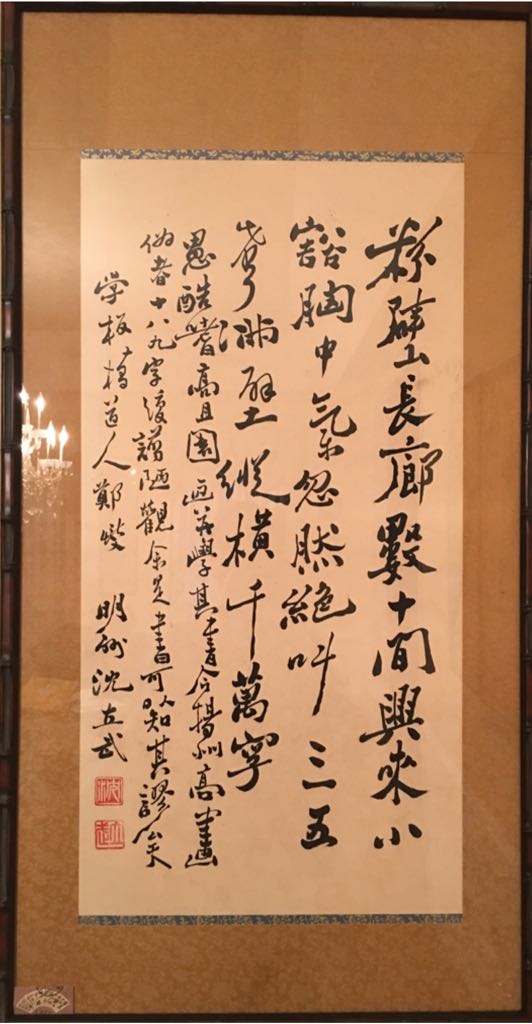 粉壁長廊數十間興來小
豁胸中氣忽然絶叫三五
聲滿壁縱橫千萬字
愚酷嗜高且園画并學其書今揚州高書画
偽者十八九字後謬陋觀余是書可以知其謬矣
学板橋道人鄭燮 明州沈立武